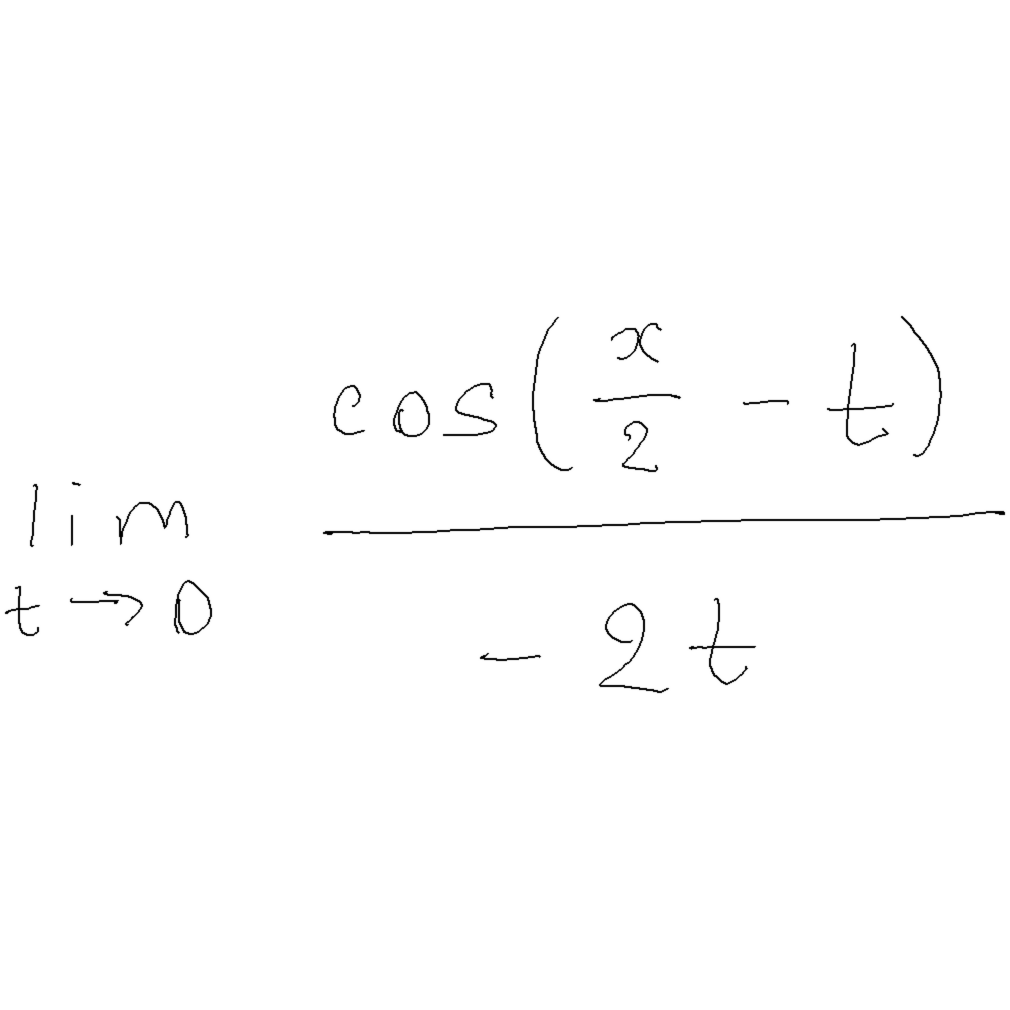 \lim_{t \to 0} \frac{\cos\left(\frac{x}{2} - t\right)}{-2t}